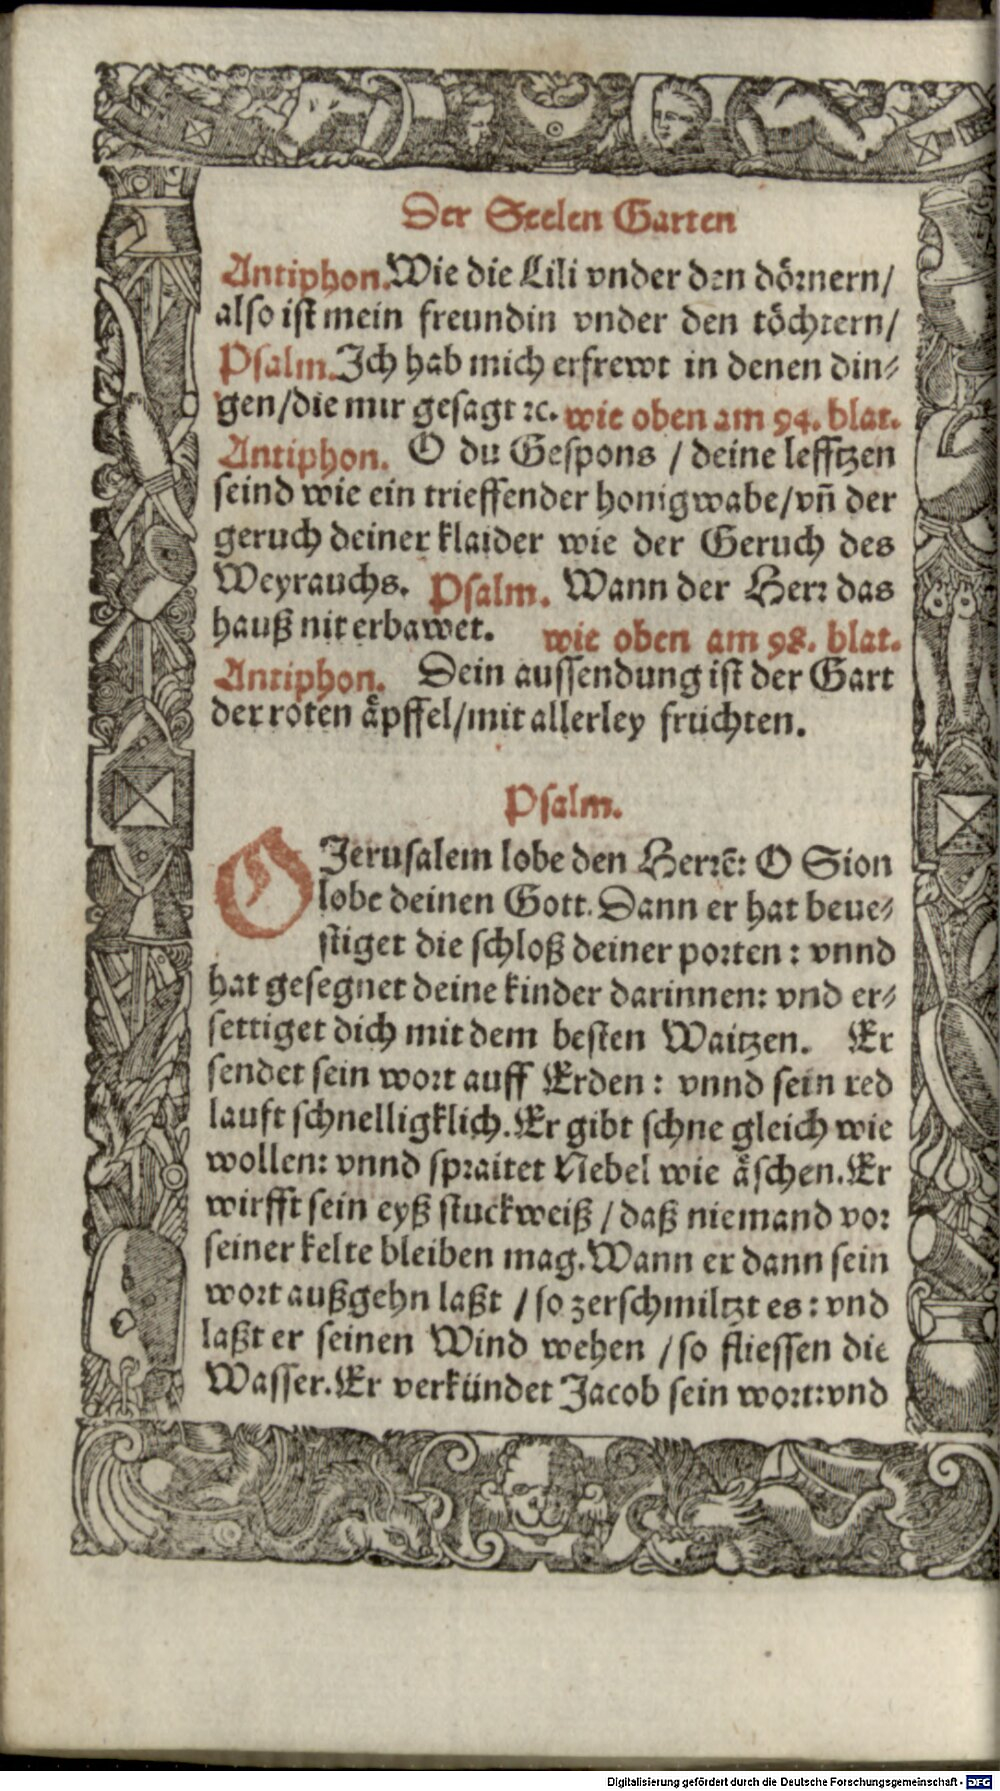 Der Seelen Garten
Antiphon. Wie die Lili vnder den dörnern/
also ist mein freundin vnder den töchtern/
Psalm. Ich hab mich erfrewt in denen din⸗
gen/die mir gesagt ꝛc. wie oben am 94. blat.
Antiphon. O du Gespons / deine lefftzen
seind wie ein trieffender honigwabe/vn̄ der
geruch deiner klaider wie der Geruch des
Weyrauchs. Psalm. Wann der Herr das
hauß nit erbawet. wie oben am 98. blat.
Antiphon. Dein aussendung ist der Gart
der roten äpffel/mit allerley früchten.
Psalm.
O Jerusalem lobe den Herrē: O Sion
lobe deinen Gott. Dann er hat beue⸗
stiget die schloß deiner porten: vnnd
hat gesegnet deine kinder darinnen: vnd er⸗
settiget dich mit dem besten Waitzen. Er
sendet sein wort auff Erden: vnnd sein red
lauft schnelligklich. Er gibt schne gleich wie
wollen: vnnd spraitet Nebel wie äschen. Er
wirfft sein eyß stuckweiß / daß niemand vor
seiner kelte bleiben mag. Wann er dann sein
wort außgehn laßt / so zerschmiltzt es: vnd
laßt er seinen Wind wehen / so fliessen die
Wasser. Er verkündet Jacob sein wort: vnd
Digitalisierung gefördert durch die Deutsche Forschungsgemeinschaft - DFG